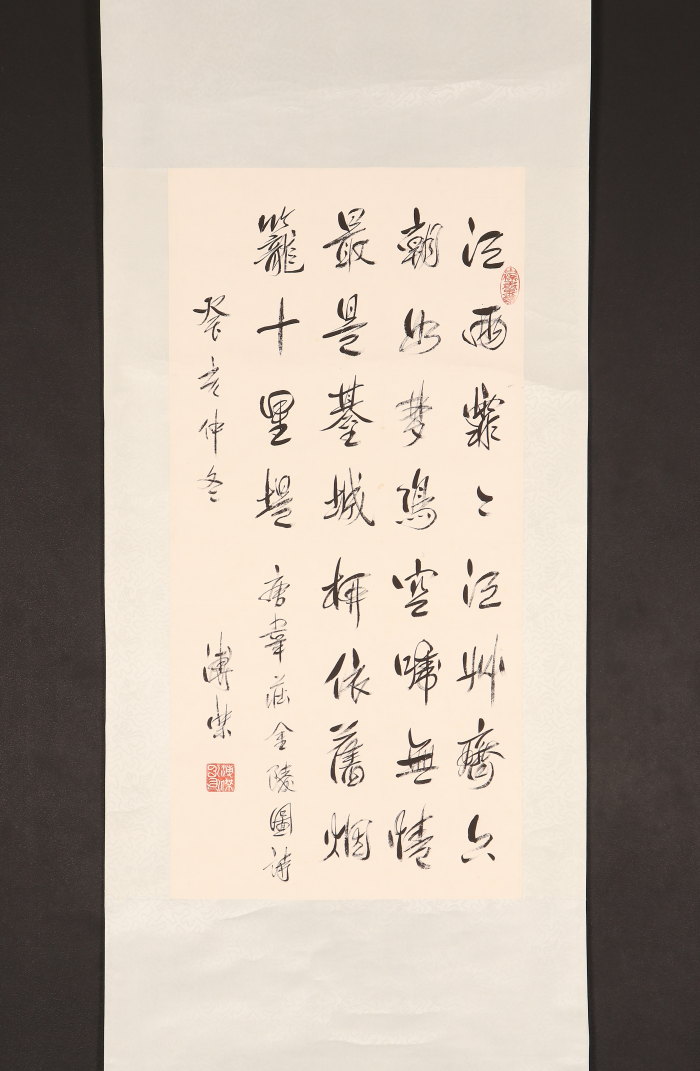 江雨霏〻江艸齊六
朝如夢鳥空啼無情
最是臺城柳依舊烟
籠十里堤 唐韋莊金陵圖詩
癸亥仲冬 溥傑